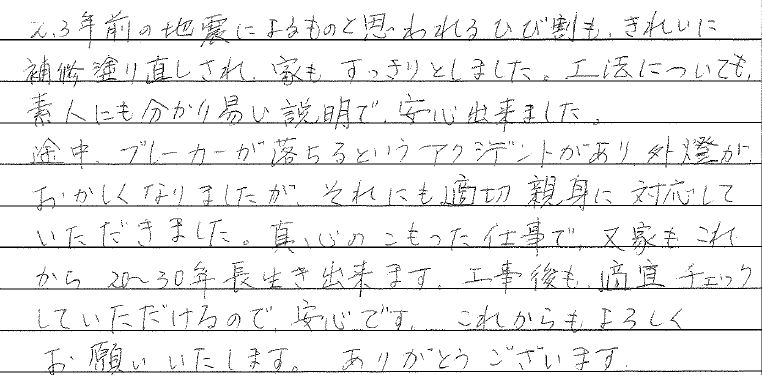 2、3年前の地震によるものと思われるひび割も、きれいに
補修塗り直しされ、家もすっきりとしました。工法についても、
素人にも分かり易い説明で、安心出来ました。
途中、ブレーカーが落ちるというアクシデントがあり、外燈が、
おかしくなりましたが、それにも適切親身に対応して
いただきました。真心のこもった仕事で、又家もこれ
から20〜30年長生き出来ます。工事後も、適宜チェック
していただけるので、安心です。これからもよろしく
お願いいたします。ありがとうございます。